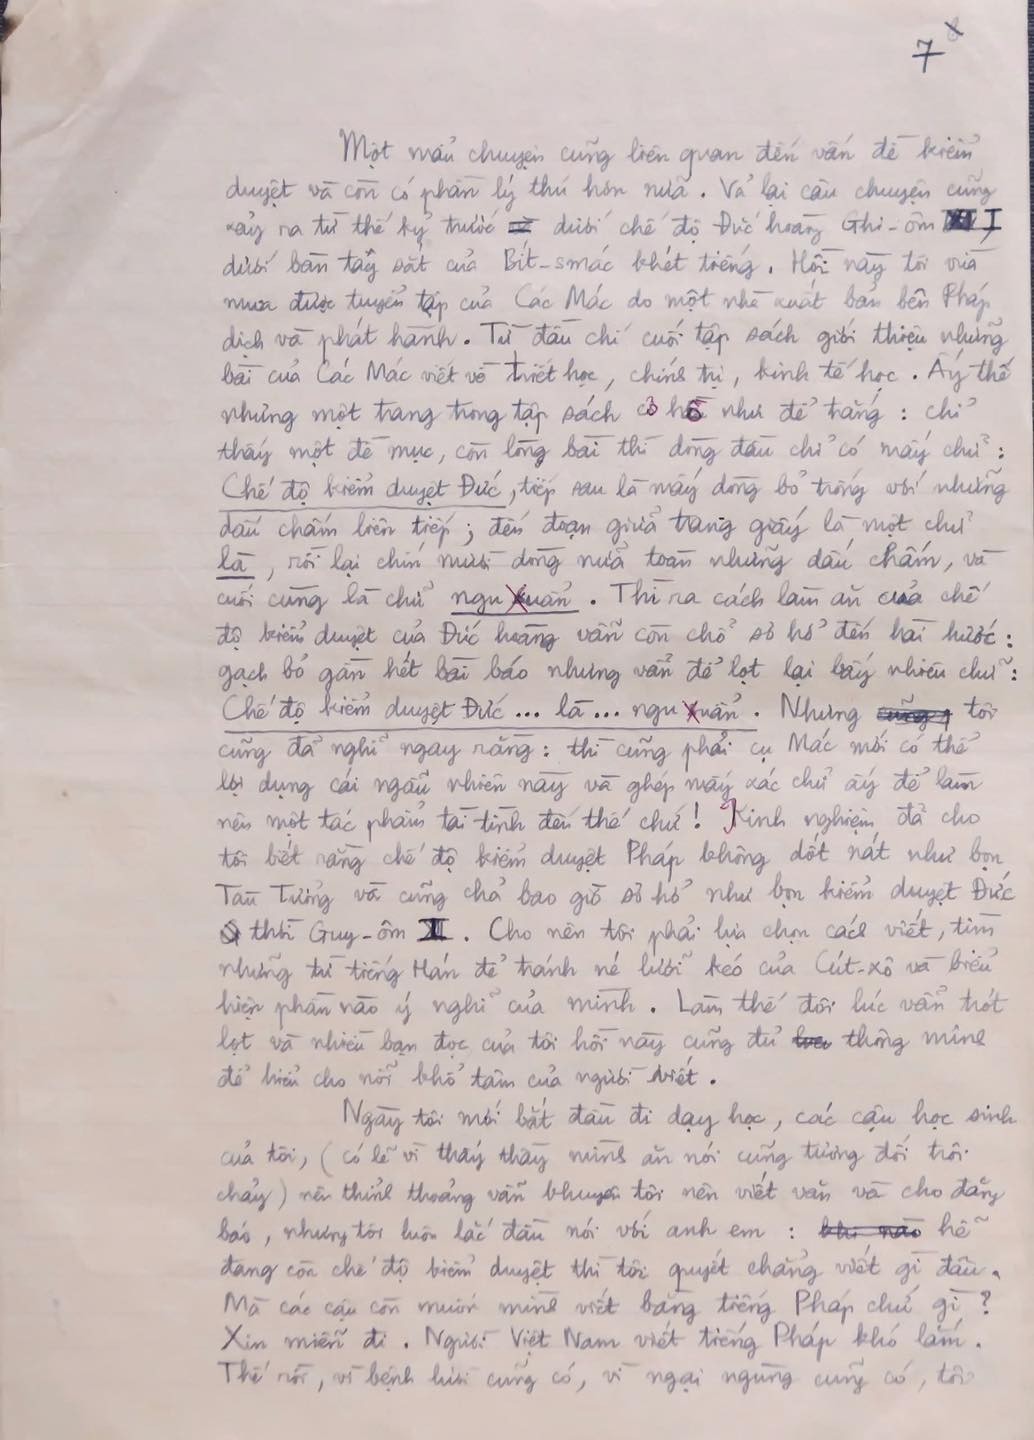 7
Một mẩu chuyện cũng liên quan đến vấn đề kiểm
duyệt và còn có phần lý thú hơn nữa. Vả lại câu chuyện cũng
xảy ra từ thế kỷ trước dưới chế độ Đức hoàng Ghi-ôm I,
dưới bàn tay sắt của Bít-smác khét tiếng. Hồi này tôi vừa
mua được tuyển tập của Các Mác do một nhà xuất bản bên Pháp
dịch và phát hành. Từ đầu chí cuối tập sách giới thiệu những
bài của Các Mác viết về triết học, chính trị, kinh tế học. Ấy thế
nhưng một trang trong tập sách có hồ như để trắng: chỉ
thấy một đề mục, còn lòng bài thì dòng đầu chỉ có mấy chữ:
Chế độ kiểm duyệt Đức, tiếp sau là mấy dòng bỏ trống với những
dấu chấm liên tiếp; đến đoạn giữa trang giấy là một chữ
là, rồi lại chín mười dòng nữa toàn những dấu chấm, và
cuối cùng là chữ ngu xuẩn. Thì ra cách làm ăn của chế
độ kiểm duyệt của Đức hoàng vẫn còn chỗ sơ hở đến hài hước:
gạch bỏ gần hết bài báo nhưng vẫn để lọt lại bấy nhiêu chữ:
Chế độ kiểm duyệt Đức... là... ngu xuẩn. Nhưng tôi
cũng đã nghĩ ngay rằng: thì cũng phải cụ Mác mới có thể
lợi dụng cái ngẫu nhiên này và ghép mấy xác chữ ấy để làm
nên một tác phẩm tài tình đến thế chứ! Kinh nghiệm đã cho
tôi biết rằng chế độ kiểm duyệt Pháp không dốt nát như bọn
Tàu Tưởng và cũng chả bao giờ sơ hở như bọn kiểm duyệt Đức
thời Guy-ôm I. Cho nên tôi phải lựa chọn cách viết, tìm
những từ tiếng Hán để tránh né lưỡi kéo của Cút-xô và biểu
hiện phần nào ý nghĩ của mình. Làm thế đôi lúc vẫn trót
lọt và nhiều bạn đọc của tôi hồi này cũng đủ thông minh
để hiểu cho nỗi khổ tâm của người viết.
Ngày tôi mới bắt đầu đi dạy học, các cậu học sinh
của tôi, (có lẽ vì thấy thầy mình ăn nói cũng tương đối trôi
chảy) nên thỉnh thoảng vẫn khuyên tôi nên viết văn và cho đăng
báo, nhưng tôi luôn lắc đầu nói với anh em: hễ
đang còn chế độ kiểm duyệt thì tôi quyết chẳng viết gì đâu.
Mà các cậu còn muốn mình viết bằng tiếng Pháp chứ gì?
Xin miễn đi. Người Việt Nam viết tiếng Pháp khó lắm.
Thế rồi, vì bệnh lười cũng có, vì ngại ngùng cũng có, tôi